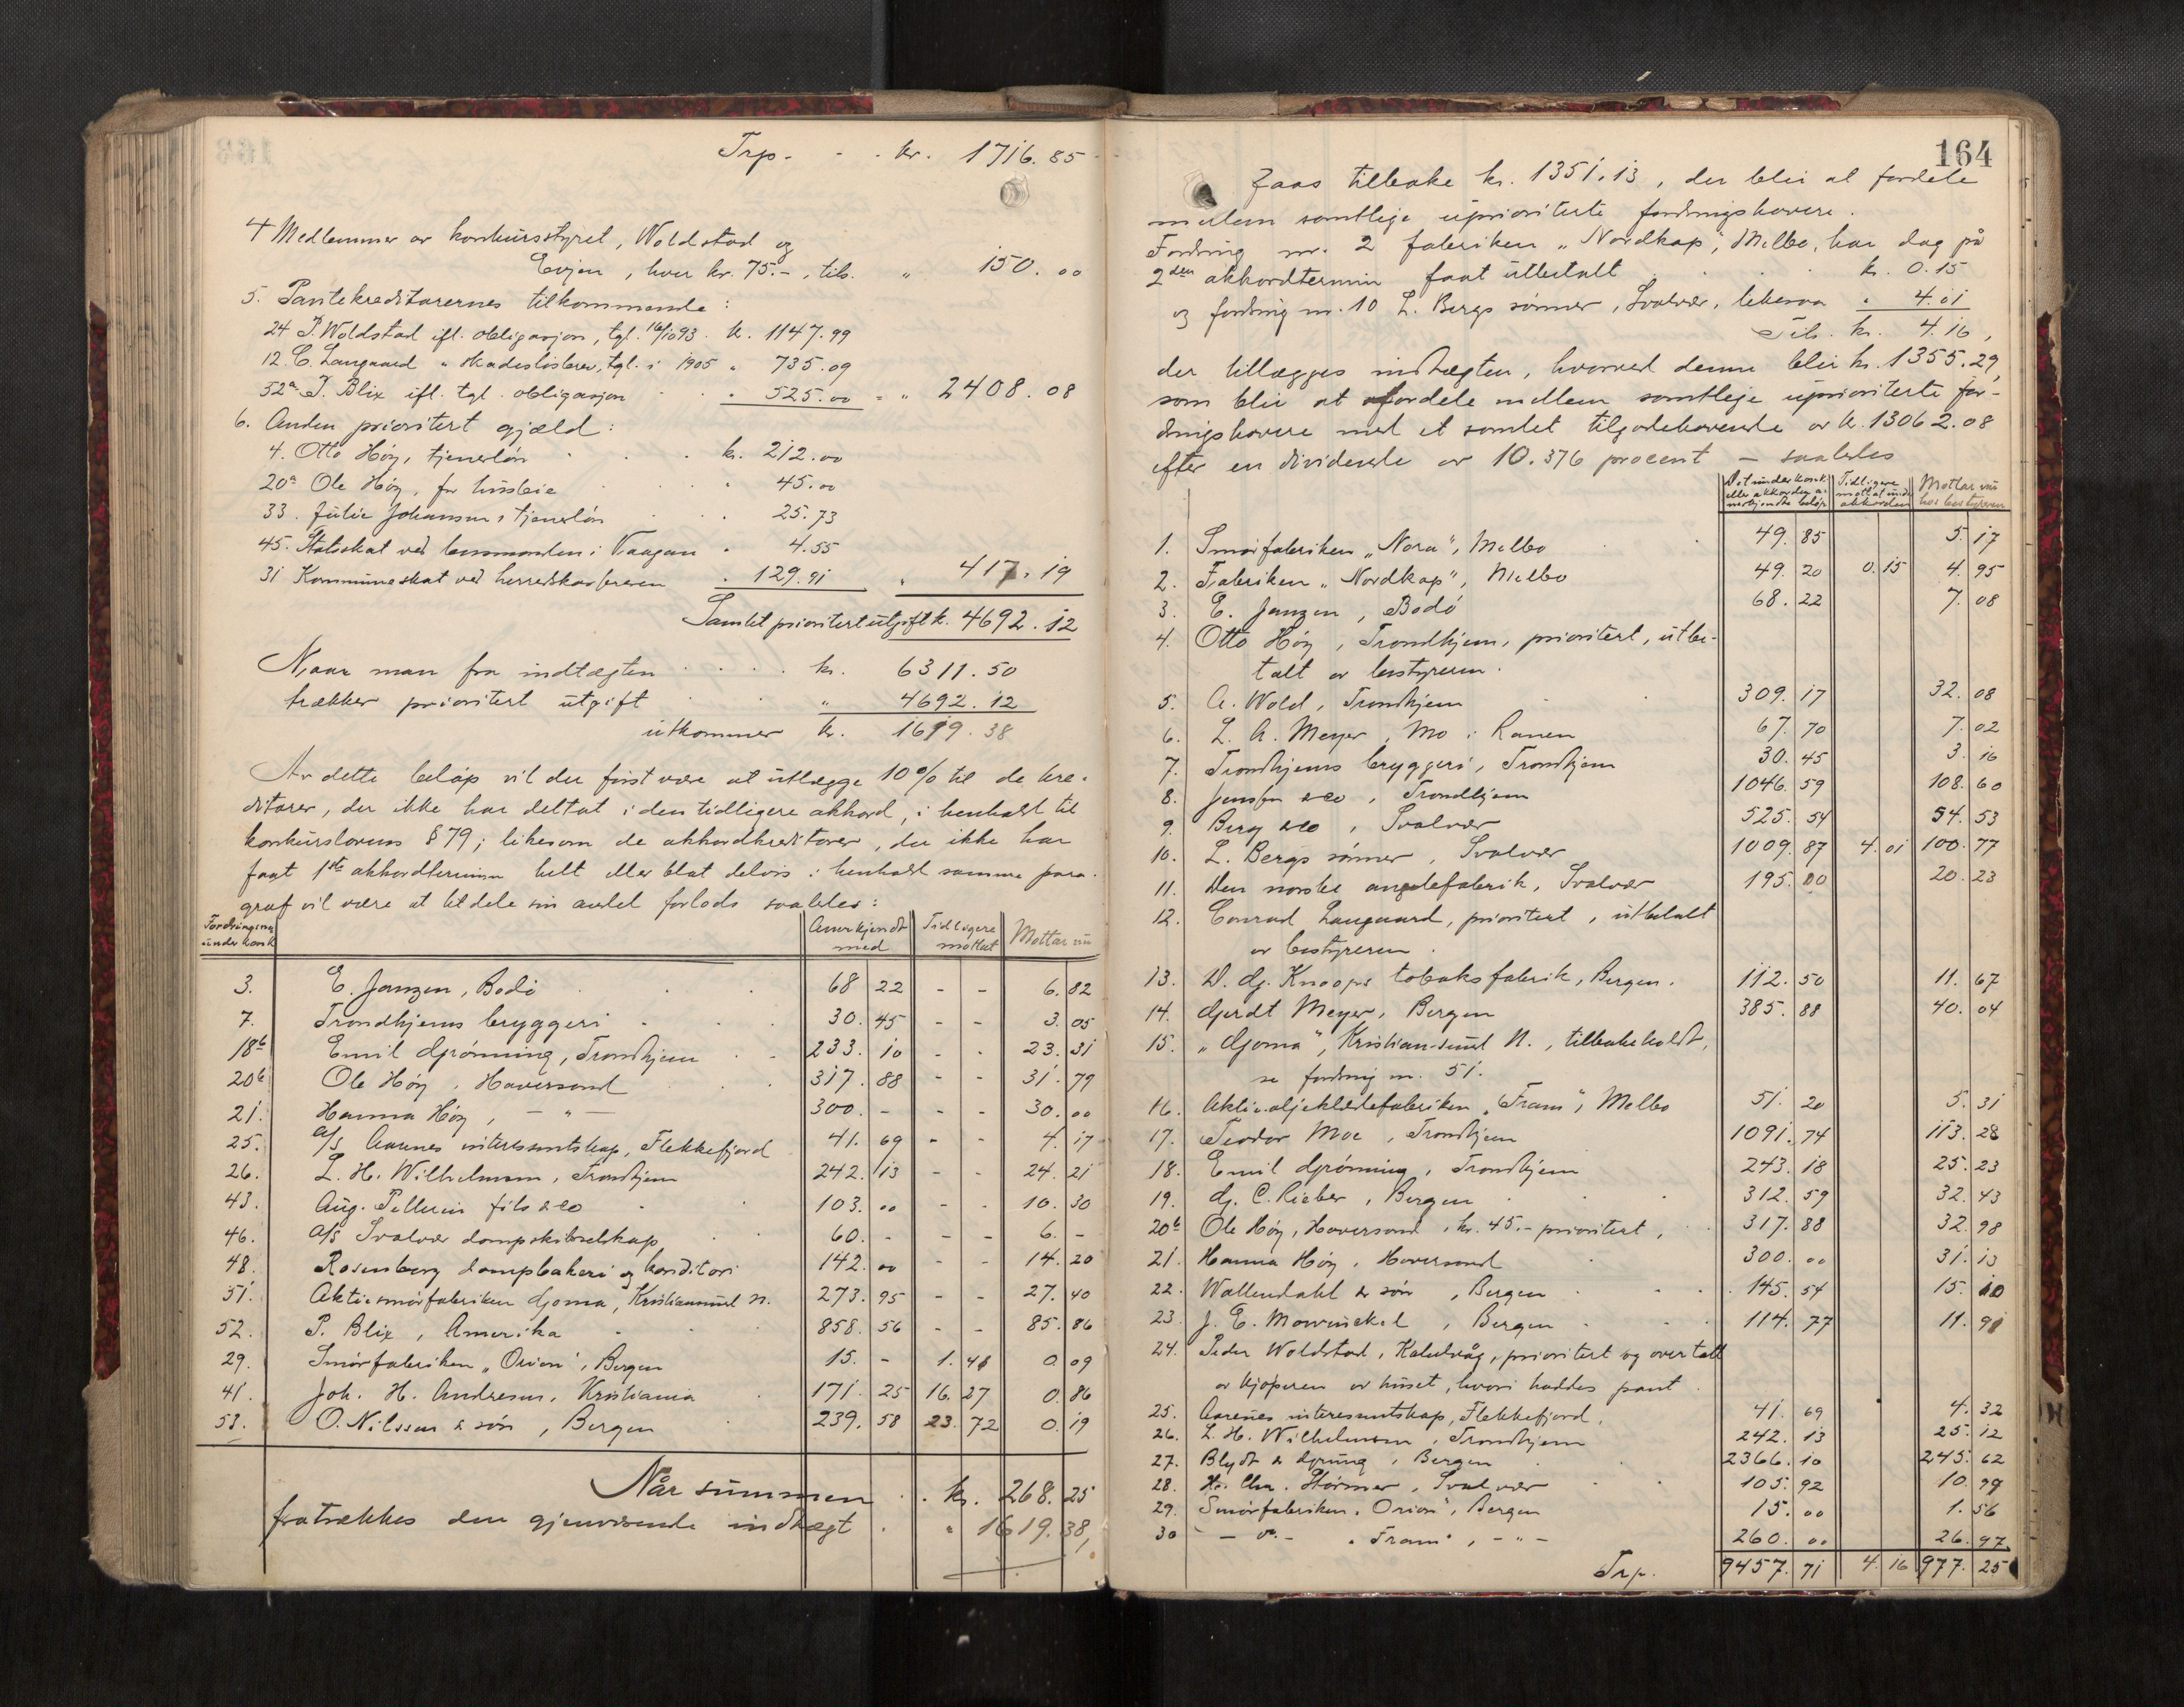 Trp. - - . kr. 1716.85
4 Medlemmer av konkursstyret, Woldstad og
Evjen, hver kr. 75.-, tils. " 150.00
5. Pantekreditorernes tilkommende:
24 P. Woldstad ifl. obligasjon, tgl. 16/10 93. kr. 1147.99
12. C. Langaard " skadeslösbrev, tgl. i 1905 " 735.09
52a J. Blix ifl. tgl. obligasjon . . " 525.00 = " 2408.08
6. Anden prioritert gjæld:
4. Otto Höy, tjenerlön . . kr. 212.00
20a Ole Höy, for husleie . " 45.00
33. Julie Johansen, tjenerlön . . 25.73
45. Statsskat ved lensmanden i Vaagan " 4.55
31 Kommuneskat ved herredskassereren " 129.91 " 417.19
Samlet prioritert utgift kr. 4692.12
Naar man fra indtægten . . . . kr. 6311.50
trækker prioritert utgift . . " 4692.12
utkommer kr. 1619.38
Av dette belöp vil der först være at utlægge 10% til de kre-
ditorer, der ikke har deltat i den tidligere akkord, i henhold til
konkurslovens § 79; likesom de akkordkreditorer, der ikke har
faat 1ste akkordtermin helt eller blot delvis i henhold samme para-
graf vil være at tildele sin andel forlods saaledes:
Fordringsnr. under konk. Anerkjendt med Tidligere mottat Mottar nu
3. E. Janzen, Bodö . . . 68 22 - - 6.82
7. Trondhjems bryggeri . . . 30.45 - - 3.05
18b Emil Grönning, Trondhjem . . 233.10 - - 23.31
20b Ole Höy, Haversand . . . 317.88 - - 31.79
21. Hanna Höy, - " - 300. - - - 30.00
25. A/S Aarenes interesentskap, Flekkefjord 41.69 - - 4.17
26. L. H. Wilhelmsen, Trondhjem 242.13 - - 24.21
43. Aug. Pellerin fils & co . . 103.00 - - 10.30
46. A/S Svolvær dampskibselskap . . 60. - - - 6. -
48. Rosenborg dampbakeri og konditori 142.00 - - 14.20
51. Aktiesmörfabriken Goma, Kristiansund N. 273.95 - - 27.40
52. P. Blix, Amerika . . . 858.56 - - 85.86
29. Smörfabriken „Orion", Bergen 15. - 1.41 0.09
41. Joh. H. Andresen, Kristiania . 171.25 16.27 0.86
53. O. Nilssen & sön, Bergen . 239.58 23.72 0.19
Når summen . . kr. 268.25
fratrækkes den gjenværende indtægt . " 1619.38,
164
faas tilbake kr. 1351.13, der blir at fordele
mellem samtlige uprioriterte fordringshavere.
Fordring nr. 2 fabriken „Nordkap", Melbo, har dog på
2den akkordtermin faat utbetalt . . . kr. 0.15
og fordring nr. 10 L. Bergs sönner, Svolvær, likesaa " 4.01
Tils. kr. 4.16,
der tillægges indtægten, hvorved denne blir kr. 1355.29,
som blir at fordele mellem samtlige uprioriterte for-
dringshavere med et samlet tilgodehavende av kr. 13062.08
efter en dividende av 10.376 procent - saaledes
Det under konk. eller akkorden anerkjendte beløp Tidligere mottat under akkorden Mottar nu hos bestyreren
1. Smörfabriken „Nora", Melbo . . 49.85 5.17
2. Fabriken „Nordkap", Melbo 49.20 0.15 4.95
3. E. Janzen, Bodö 68.22 7.08
4. Otto Höy, Trondhjem, prioritert, utbe-
talt av bestyreren.
5. A. Wold, Trondhjem . . 309.17 32.08
6. L. A. Meyer, Mo i Ranen 67.70 7.02
7. Trondhjems bryggeri, Trondhjem 30.45 3.16
8. Jensen & co, Trondhjem 1046.59 108.60
9. Berg & co, Svolvær 525.54 54.53
10. L. Bergs sönner, Svolvær 1009.87 4.01 100.77
11. Den norske angelfabrik, Svolvær 195.00 20.23
12. Conrad Langaard, prioritert, utbetalt
av bestyreren.
13. D. G. Knoops tobaksfabrik, Bergen. 112.50 11.67
14. Gerdt Meyer, Bergen 385.88 40.04
15. „Goma", Kristiansund N., tilbakeholdt,
se fordring nr. 51.
16. Aktie-oljeklædefabriken „Fram", Melbo 51.20 5.31
17. Teodor Moe, Trondhjem 1091.74 113.28
18. Emil Grönning, Trondhjem 243.18 25.23
19. G. C. Rieber, Bergen . . . 312.59 32.43
20b Ole Höy, Haversand, kr. 45.- prioritert, . . 317.88 32.98
21. Hanna Höy, Haversand . 300.00 31.13
22. Wallendahl & sön, Bergen . . . 145.54 15.10
23. J. E. Mowinckel, Bergen . . 114.77 11.91
24. Peder Woldstad, Kalvåg, prioritert og overtatt
av kjöperen av huset, hvori haddes pant.
25. Aarenes interesentskap, Flekkefjord. 41.69 4.32
26. L. H. Wilhelmsen, Trondhjem 242.13 25.12
27. Blydt & Grung, Bergen . 2366.10 245.62
28. Hr. Chr. Störmer, Svolvær . . 105.92 10.99
29. Smörfabriken „Orion", Bergen 15.00 1.56
30 - do. - „Fram", - " - 260.00 26.97
Trp. 9457.71 4.16 977.25